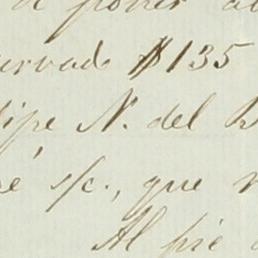 a poner a
ervado $135
lipe N. del B
é s/c., que
Al pie